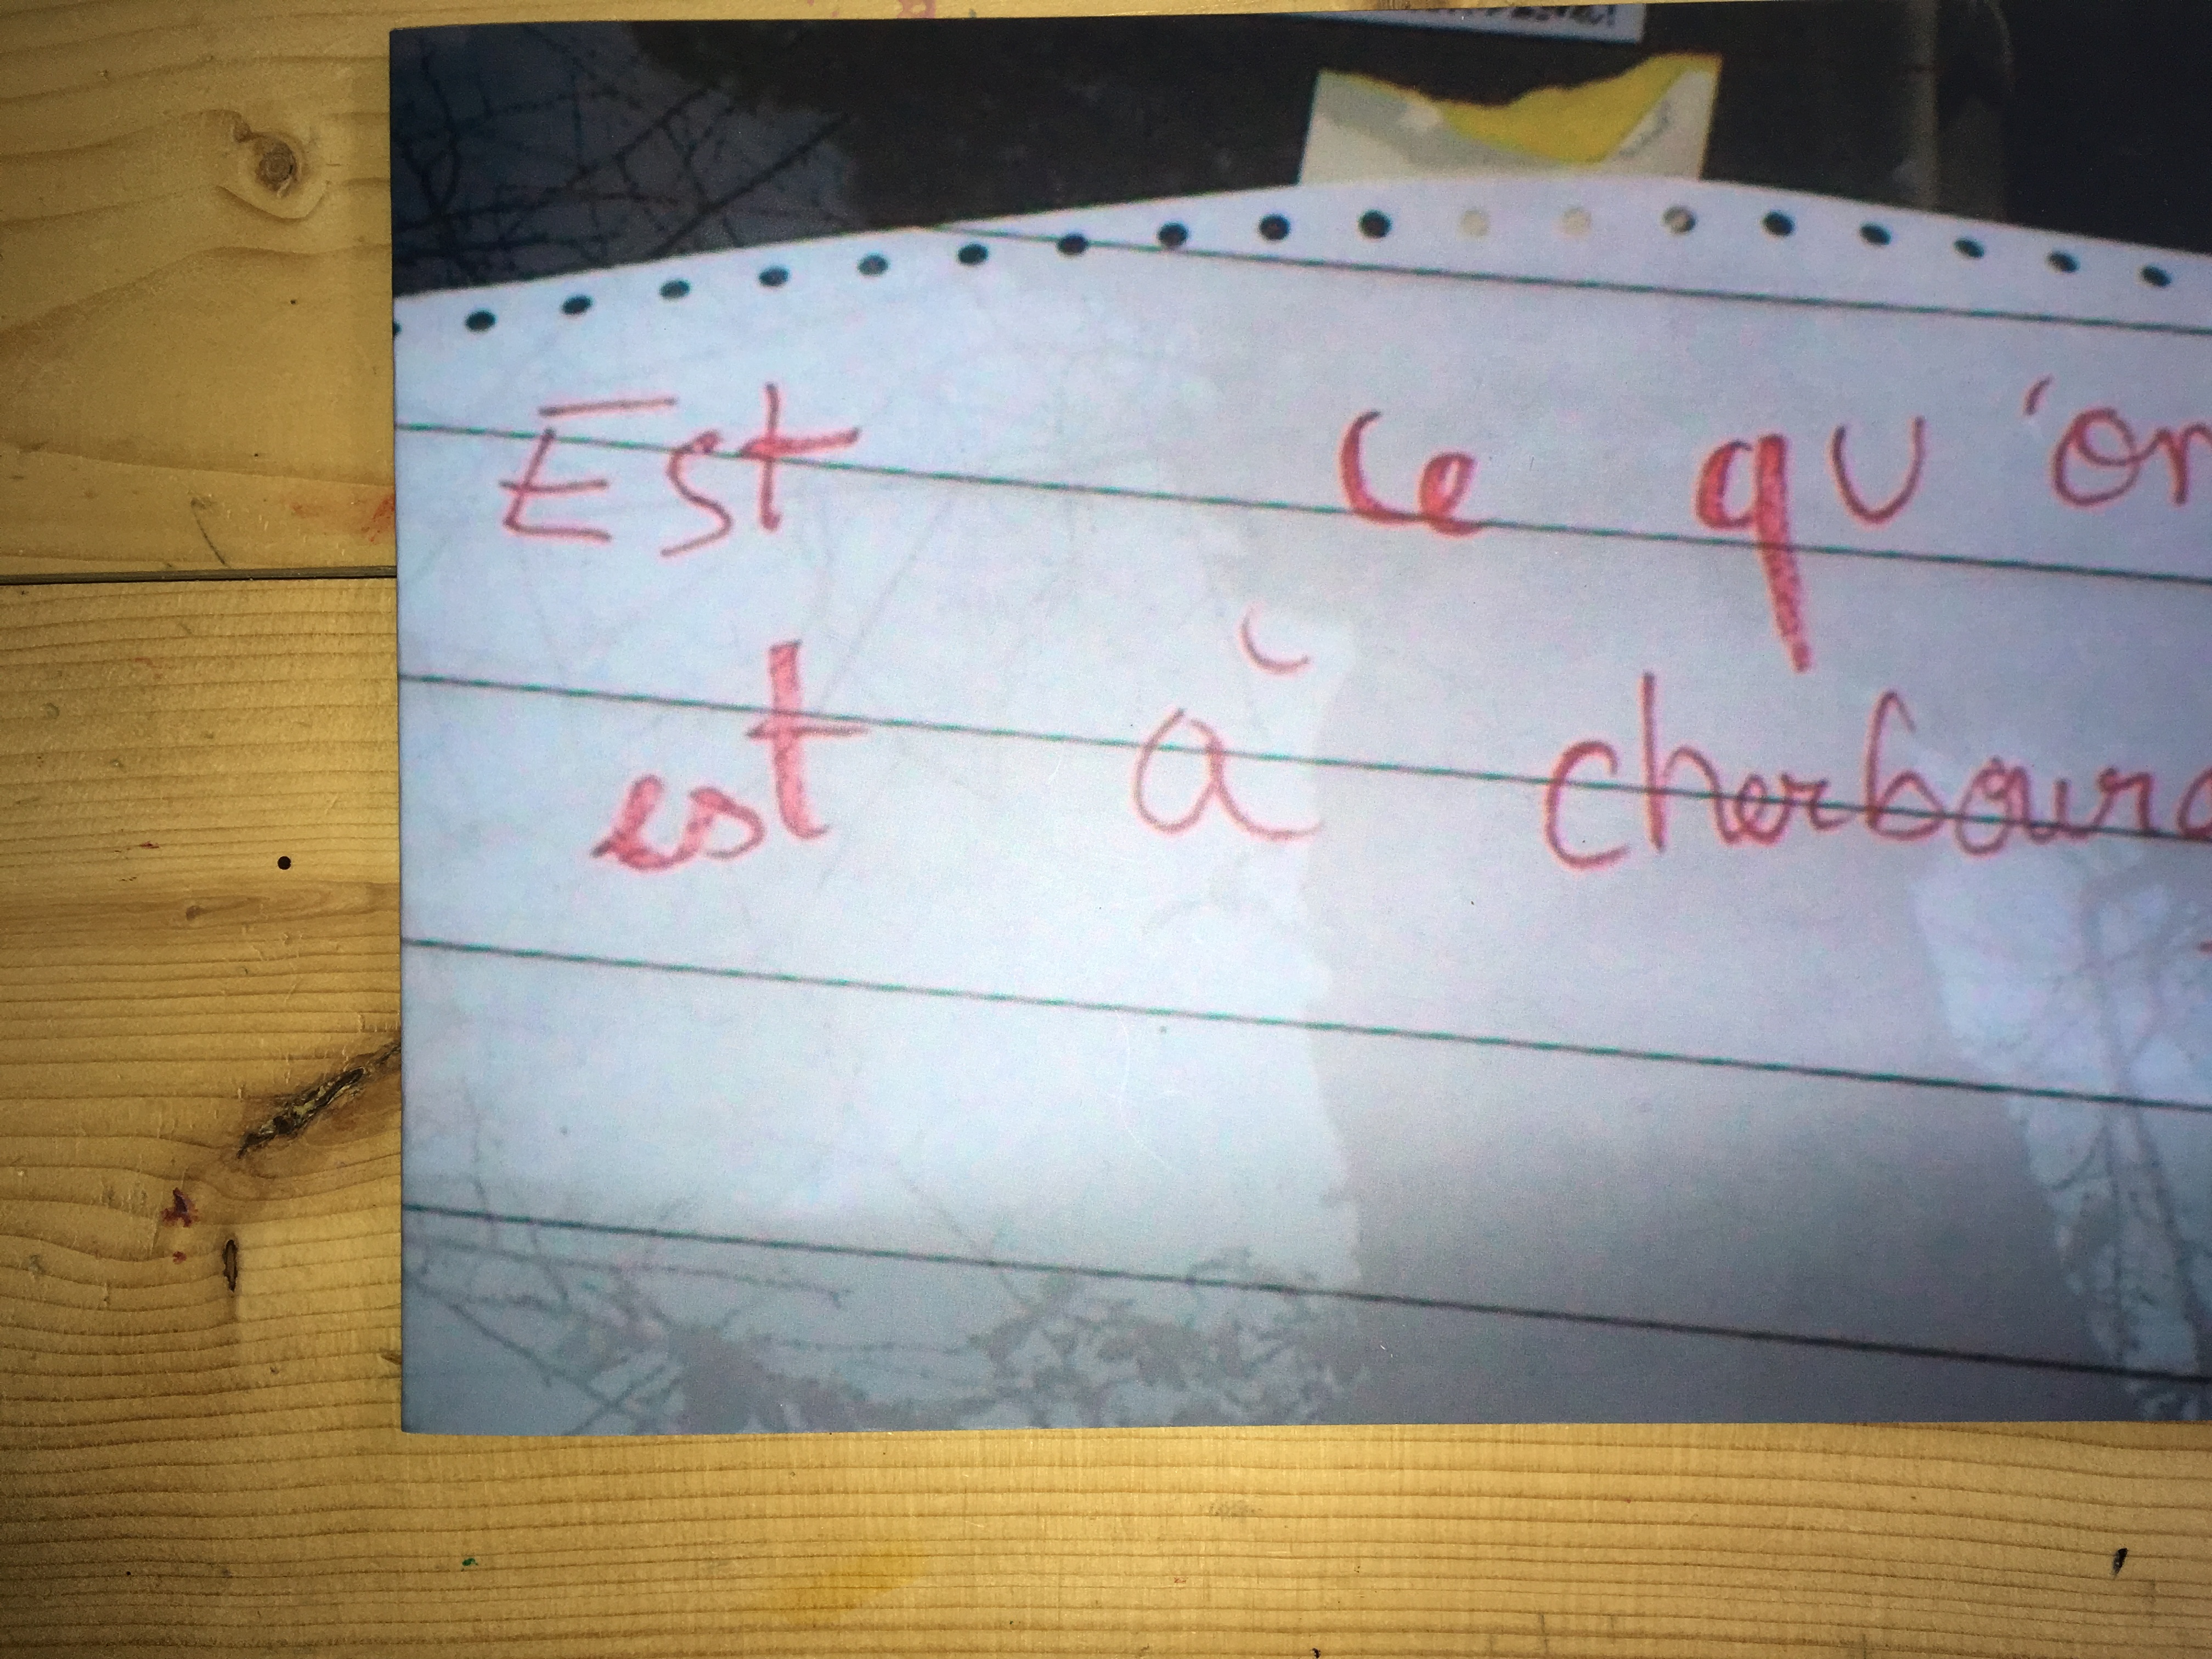 Est ce qu'on
est à cherbourg